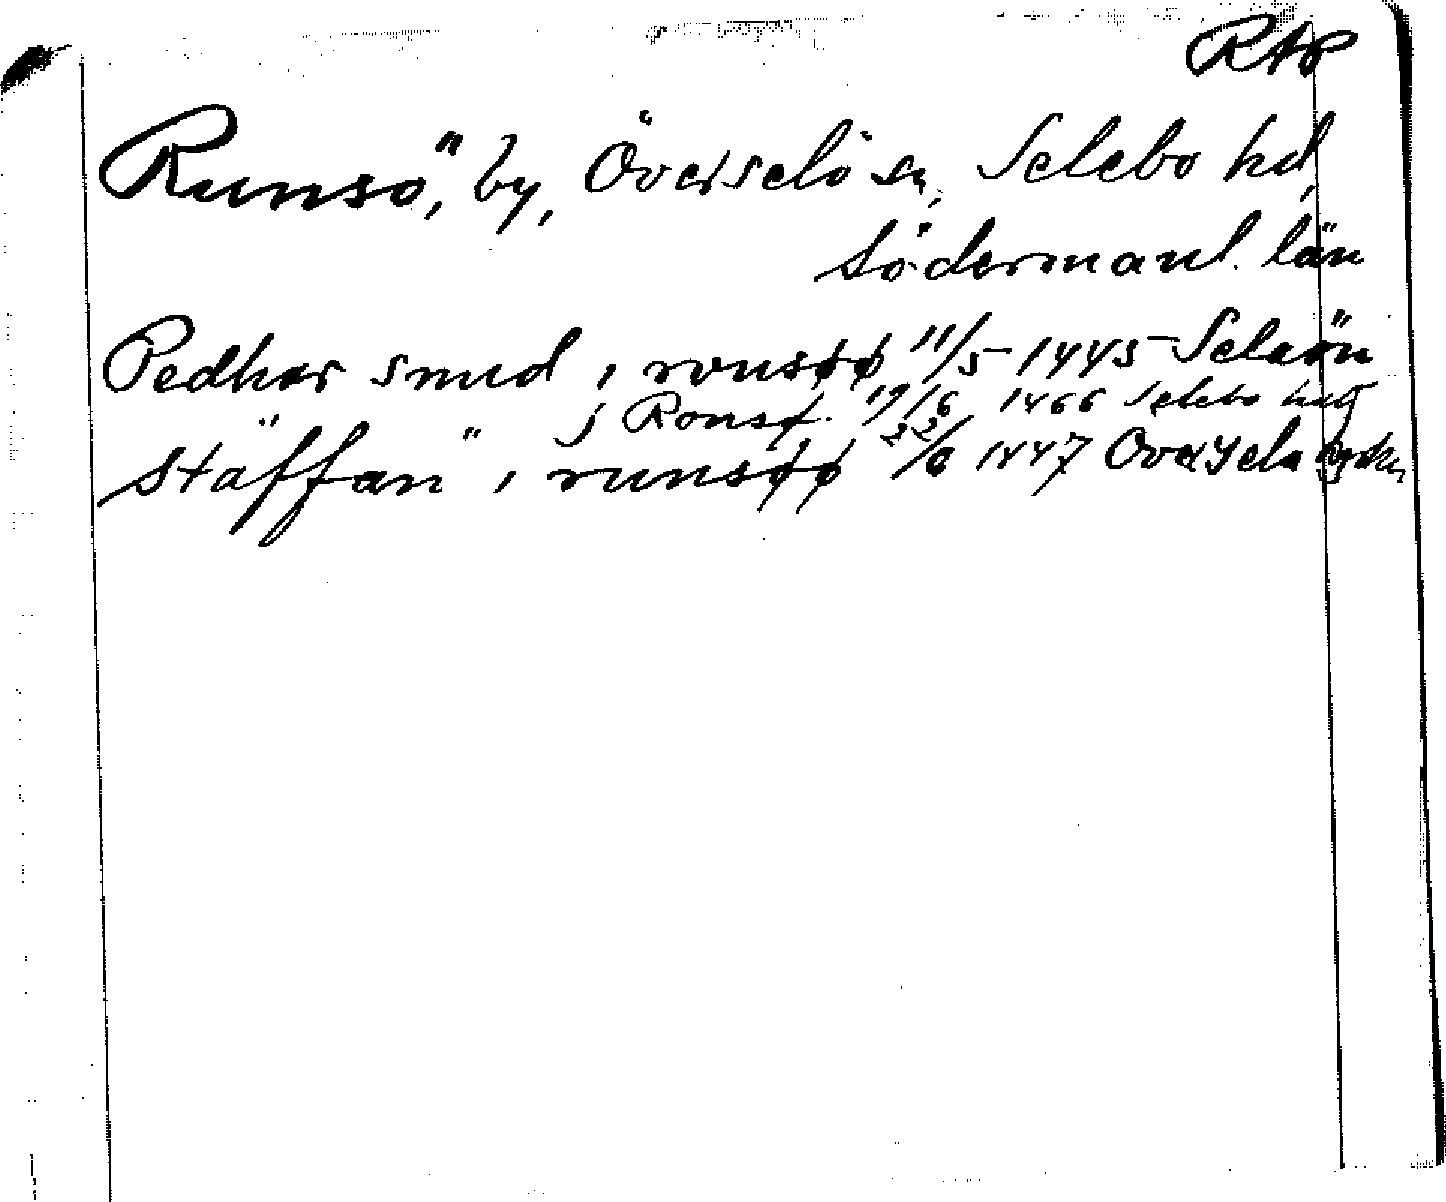 RAP
Runsö, by, Överselö sn, Selebo hd,
Södermanl. län
Pedher smed i ronsøø 11/5 1445 Selaön
j Ronsø 19/6 1466 Selebo hdg
stäffan i runsøø 22/6 1447 Oversela